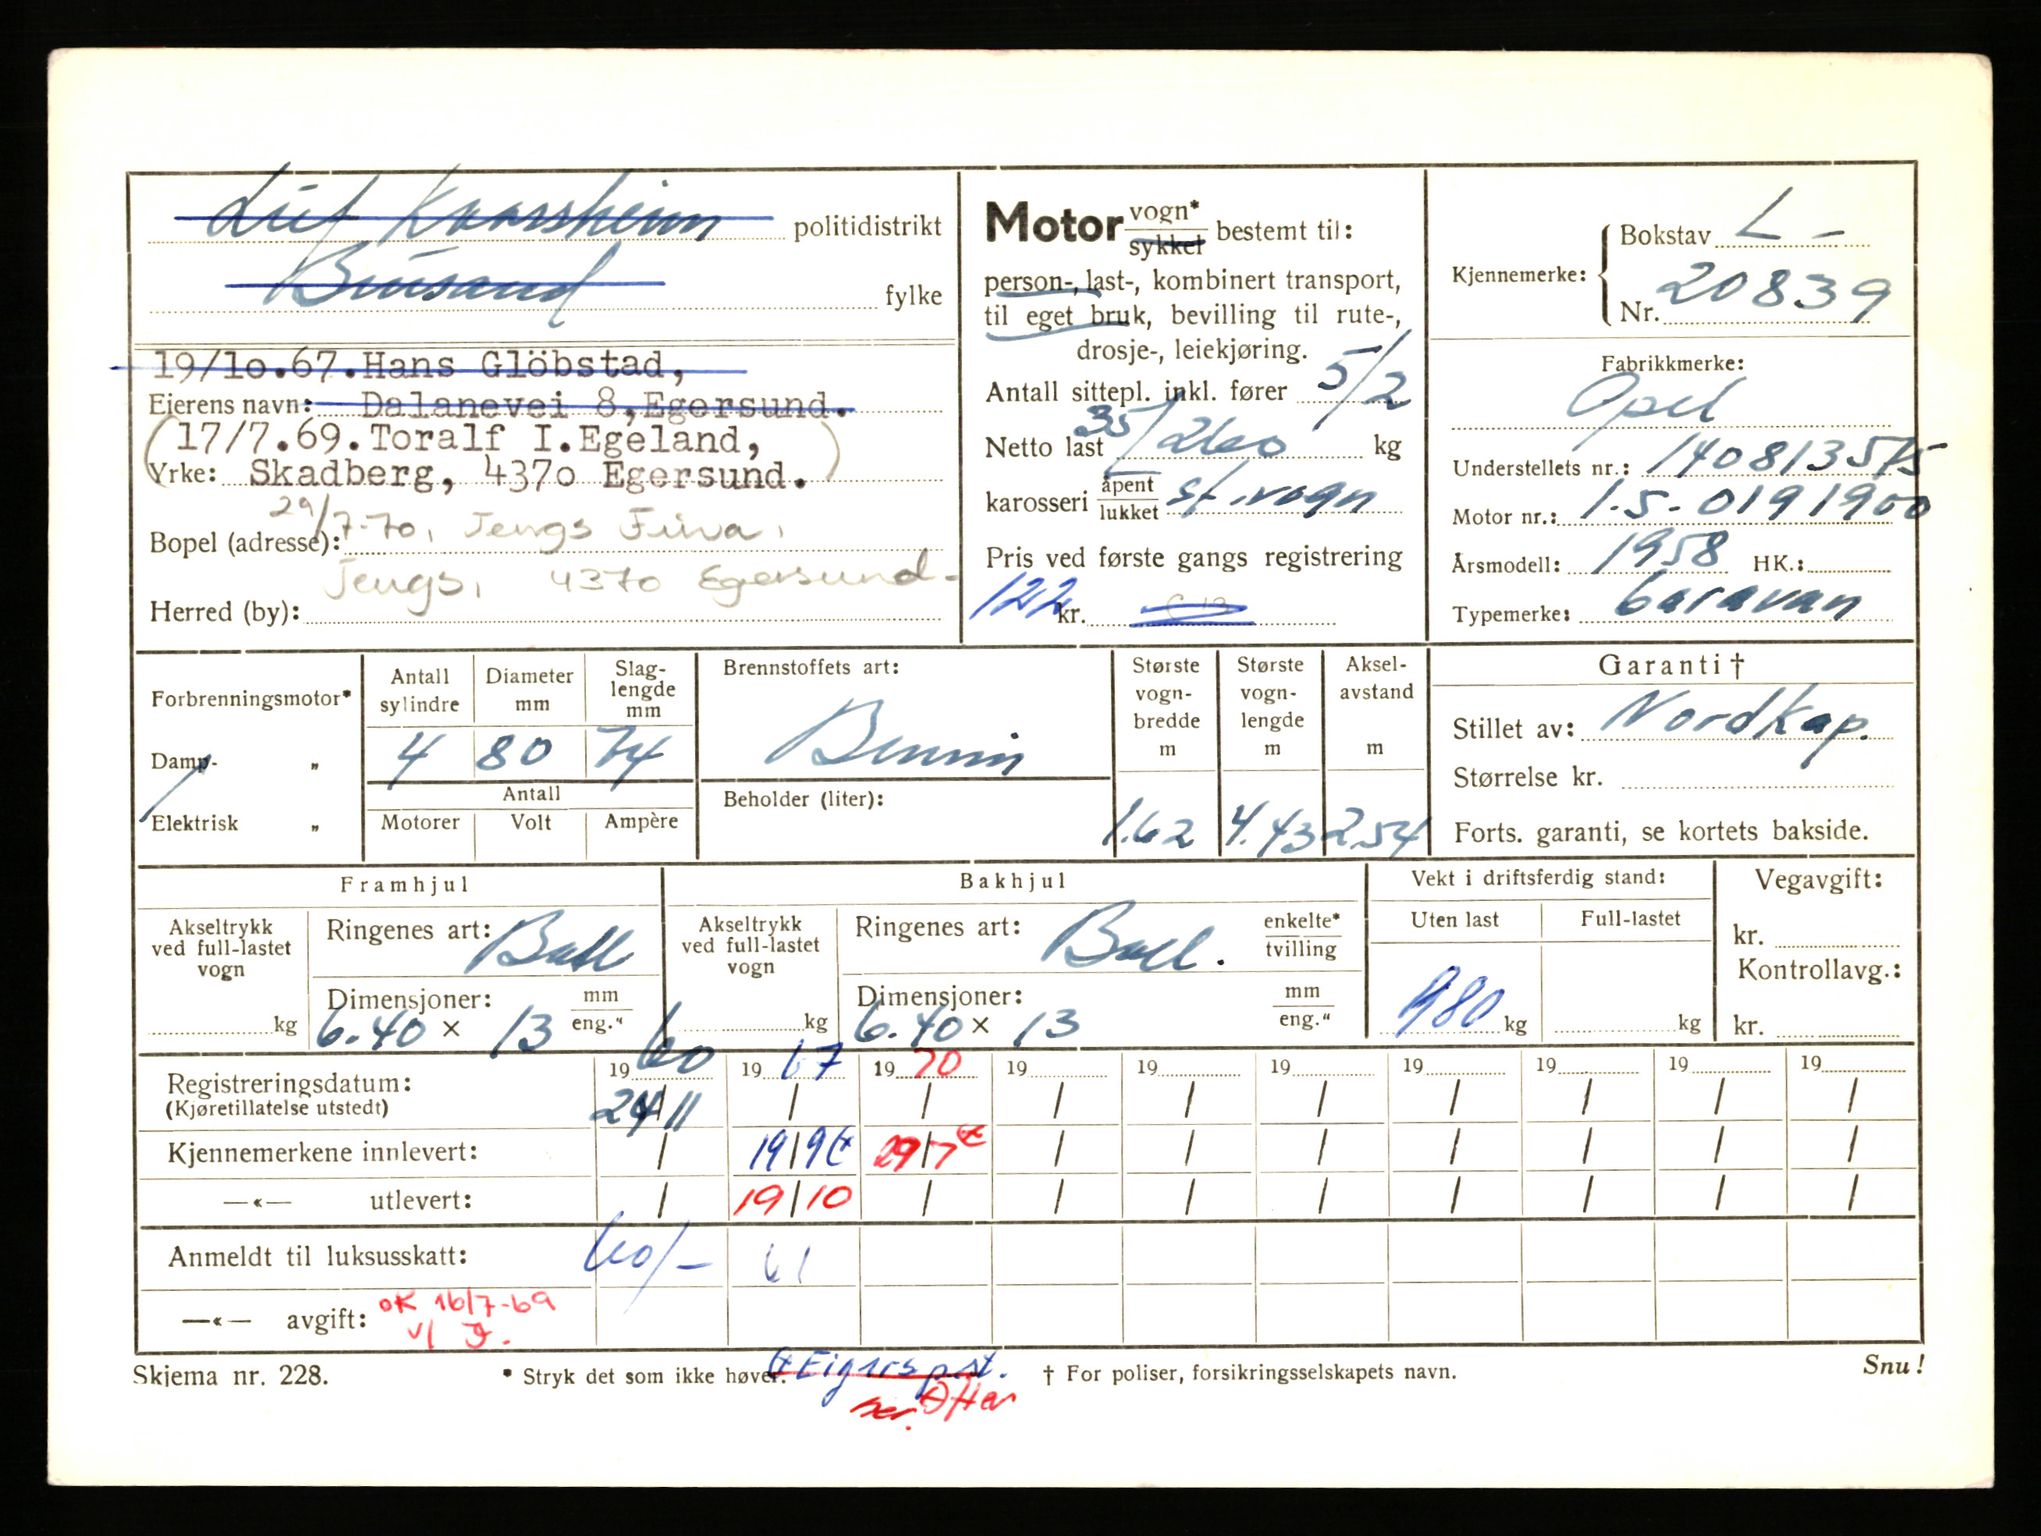 politidistrikt
Brusand
fylke
19/10.67.Hans Glöbstad,
Eierens navn: Dalanevei 8, Egersund.
(17/7.69. Toralf I.Egeland,
Yrke: Skadberg, 4370 Egersund.)
29/7-70, Tengs Finva,
Bopel (adresse):
Tengs, 4370 Egersund.
Herred (by):
Motor vogn* / sykkel bestemt til:
person-, last-, kombinert transport,
til eget bruk, bevilling til rute-,
drosje-, leiekjøring.
Antall sittepl. inkl. fører 5/2
Netto last 35/260 kg
karosseri åpent / lukket st.vogn
Pris ved første gangs registrering
122 kr.
Kjennemerke: Bokstav L -
Nr. 20839
Fabrikkmerke:
Opel
Understellets nr.: 140813575
Motor nr.: 1.5-0191900
Årsmodell: 1958 HK.:
Typemerke: Caravan
Forbrenningsmotor*
Damp- „
Elektrisk „
Antall sylindre 4
Diameter mm 80
Slag-lengde mm 74
Antall
Motorer Volt Ampère
Brennstoffets art:
Bensin
Beholder (liter):
Største vogn-bredde m 1.62
Største vogn-lengde m 4.43
Aksel-avstand m 2.54
Garanti †
Stillet av: Nordkap.
Størrelse kr.
Forts. garanti, se kortets bakside.
Framhjul
Akseltrykk ved full-lastet vogn
kg
Ringenes art: Ball
Dimensjoner: mm / eng."
6.40 × 13
Bakhjul
Akseltrykk ved full-lastet vogn
kg
Ringenes art: Ball. enkelte* / tvilling
Dimensjoner: mm / eng."
6.40 × 13
Vekt i driftsferdig stand:
Uten last Full-lastet
980 kg kg
Vegavgift:
kr.
Kontrollavg.:
kr.
19 60 19 67 19 70 19 19 19 19 19 19 19
Registreringsdatum:
(Kjøretillatelse utstedt) 24/11 / / / / / / / / /
Kjennemerkene innlevert: / 19/9 29/7 / / / / / / /
—«— utlevert: / 19/10 / / / / / / / /
Anmeldt til luksusskatt: 60/- 61
—«— avgift: OK 16/7-69
v/ J.
Skjema nr. 228.
* Stryk det som ikke høver.
Eigerspost.
† For poliser, forsikringsselskapets navn.
Snu!